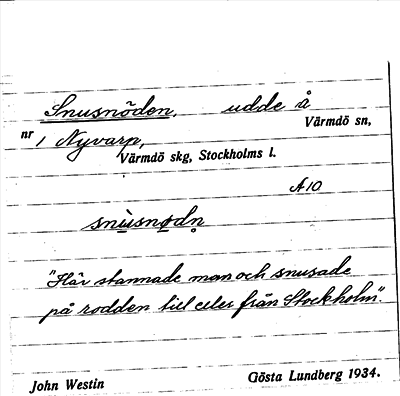 Snusnöden, udde å
Värmdö sn,
nr 1 Nyvarp,
Värmdö skg, Stockholms l.
A10
snùsnødn̥
"Här stannade man och snusade
på rodden till eller från Stockholm".
John Westin Gösta Lundberg 1934.